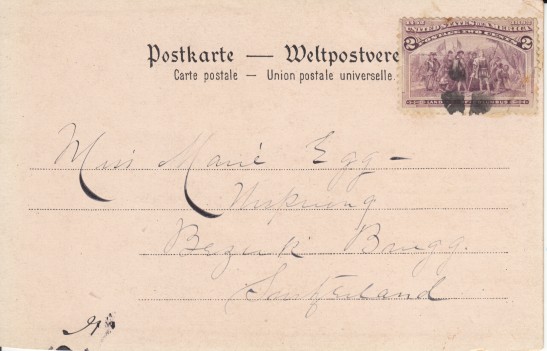 Postkarte — Weltpostvere
Carte postale — Union postale universelle.
UNITED STATES OF AMERICA
POSTAGE TWO CENTS
2 2
LANDING OF COLUMBUS
Miss Marie Egg –
Bezirk Brugg.
Switzerland